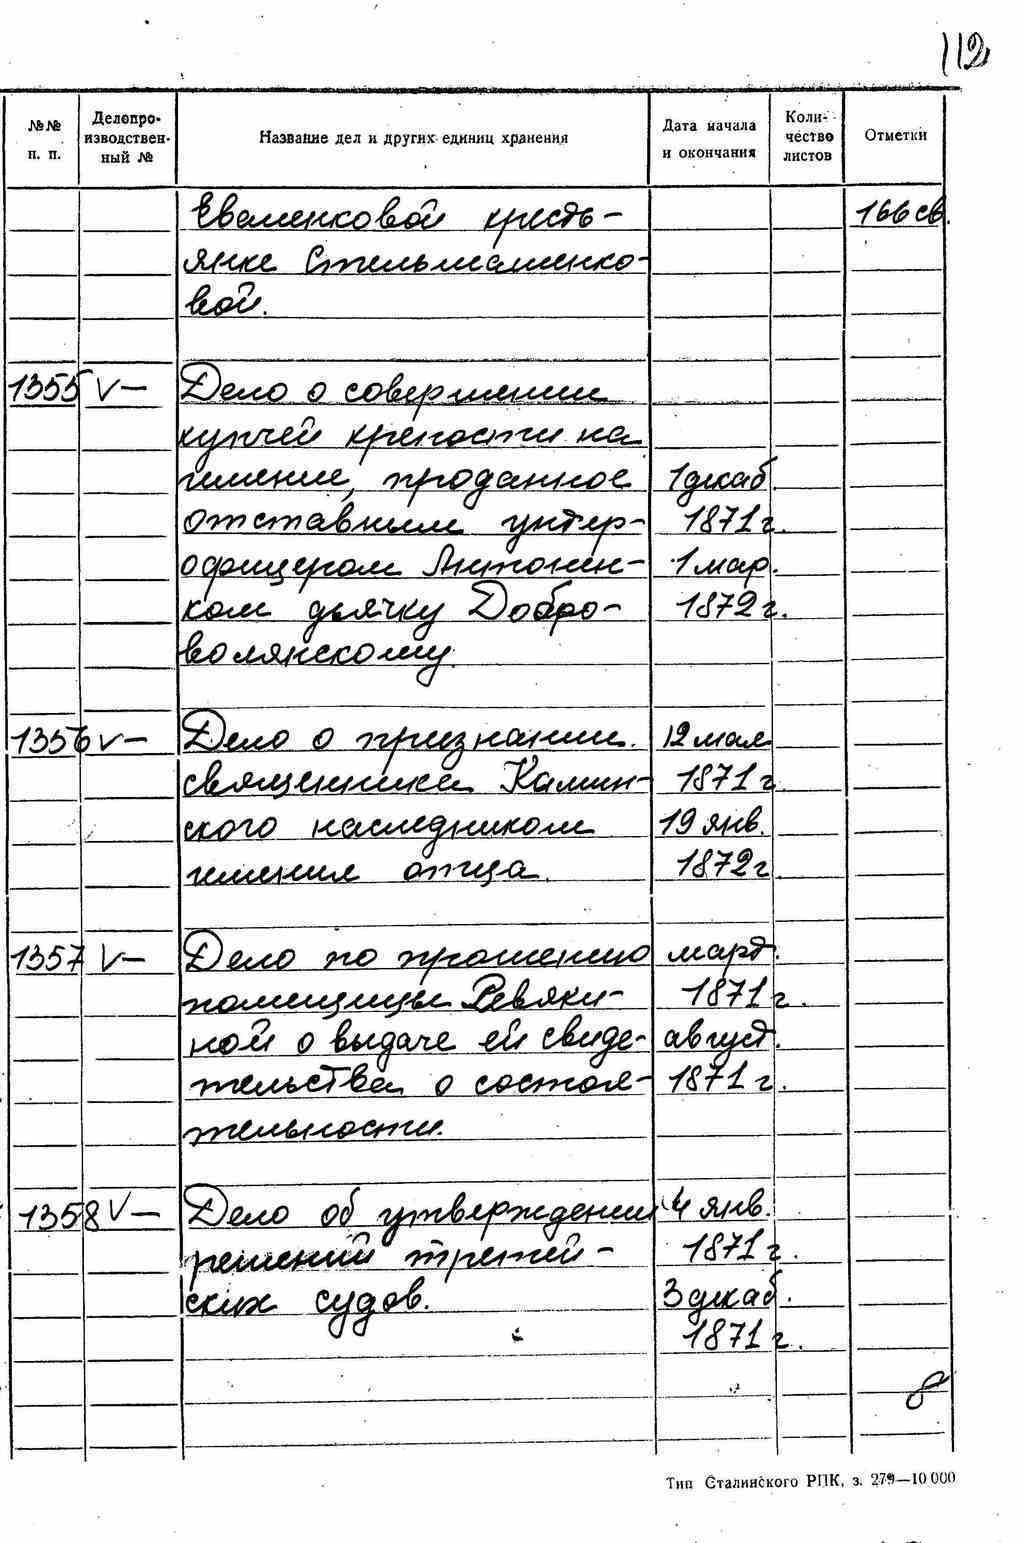 112
№№ п. п. Делопроизводственный № Название дел и других единиц хранения Дата начала и окончания Количество листов Отметки
Еваменковой кресть- 166 св.
янке Стельмашенко-
вой.
1355 V— Дело о совершении
купчей крепости на
имение, проданное 1 декаб.
отставным унтер- 1871 г.
офицером Антонен- 1 мар.
ком дьячку Добро- 1872 г.
волянскому.
1356 V— Дело о признании 12 мая
священника Камин- 1871 г.
ского наследником 19 янв.
имения отца. 1872 г
1357 V— Дело по прошению март.
помещицы Ревяки- 1871 г.
ной о выдаче ей свиде- август.
тельства о состоя- 1871 г.
тельности.
1358 V— Дело об утверждении 4 янв.
решений третей- 1871 г.
ских судов. 3 декаб.
1871 г.
8
Тип Сталинского РПК, з. 279—10 000